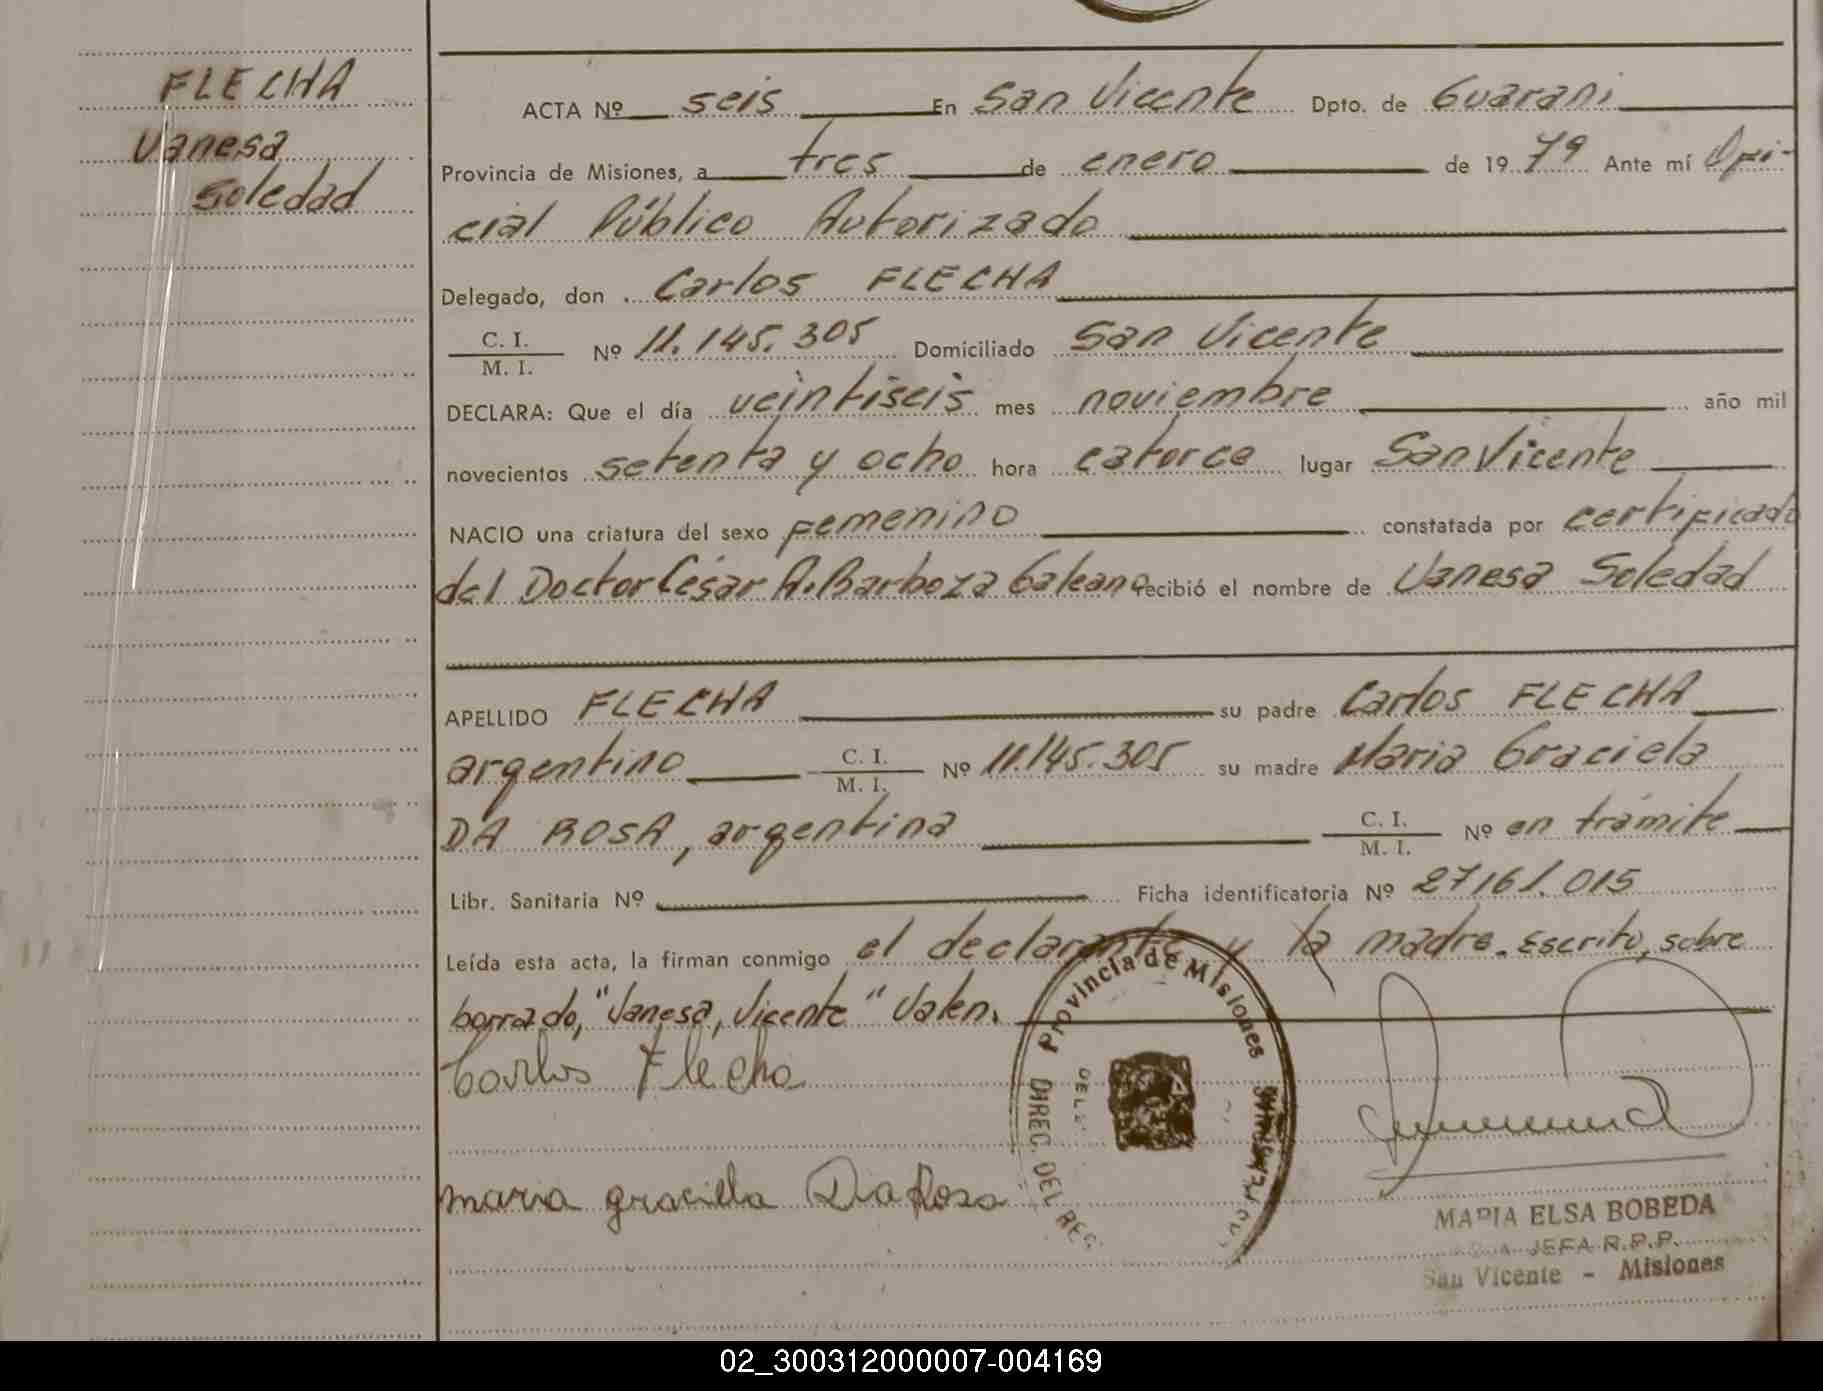 FLECHA
Vanesa
Soledad
ACTA Nº seis En San Vicente Dpto. de Guarani
Provincia de Misiones, a tres de enero de 1979 Ante mí Ofi-
cial Público Autorizado
Delegado, don Carlos FLECHA
C. I.
M. I. Nº 11.145.305 Domiciliado San Vicente
DECLARA: Que el día veintiseis mes noviembre año mil
novecientos setenta y ocho hora catorce lugar San Vicente
NACIO una criatura del sexo femenino constatada por certificado
del Doctor César A. Barboza Galeano recibió el nombre de Vanesa Soledad
APELLIDO FLECHA su padre Carlos FLECHA
argentino C. I.
M. I. Nº 11.145.305 su madre Maria Graciela
DA ROSA, argentina C. I.
M. I. Nº en trámite
Libr. Sanitaria Nº Ficha identificatoria Nº 27161.015
Leída esta acta, la firman conmigo el declarante y la madre. Escrito, sobre
borrado, "Vanesa, Vicente" Valen.
Carlos Flecha
maria graciela Da Rosa
Provincia de Misiones
DIREC. DEL REG
MARIA ELSA BOBEDA
JEFA R.P.P.
San Vicente - Misiones
02_300312000007-004169